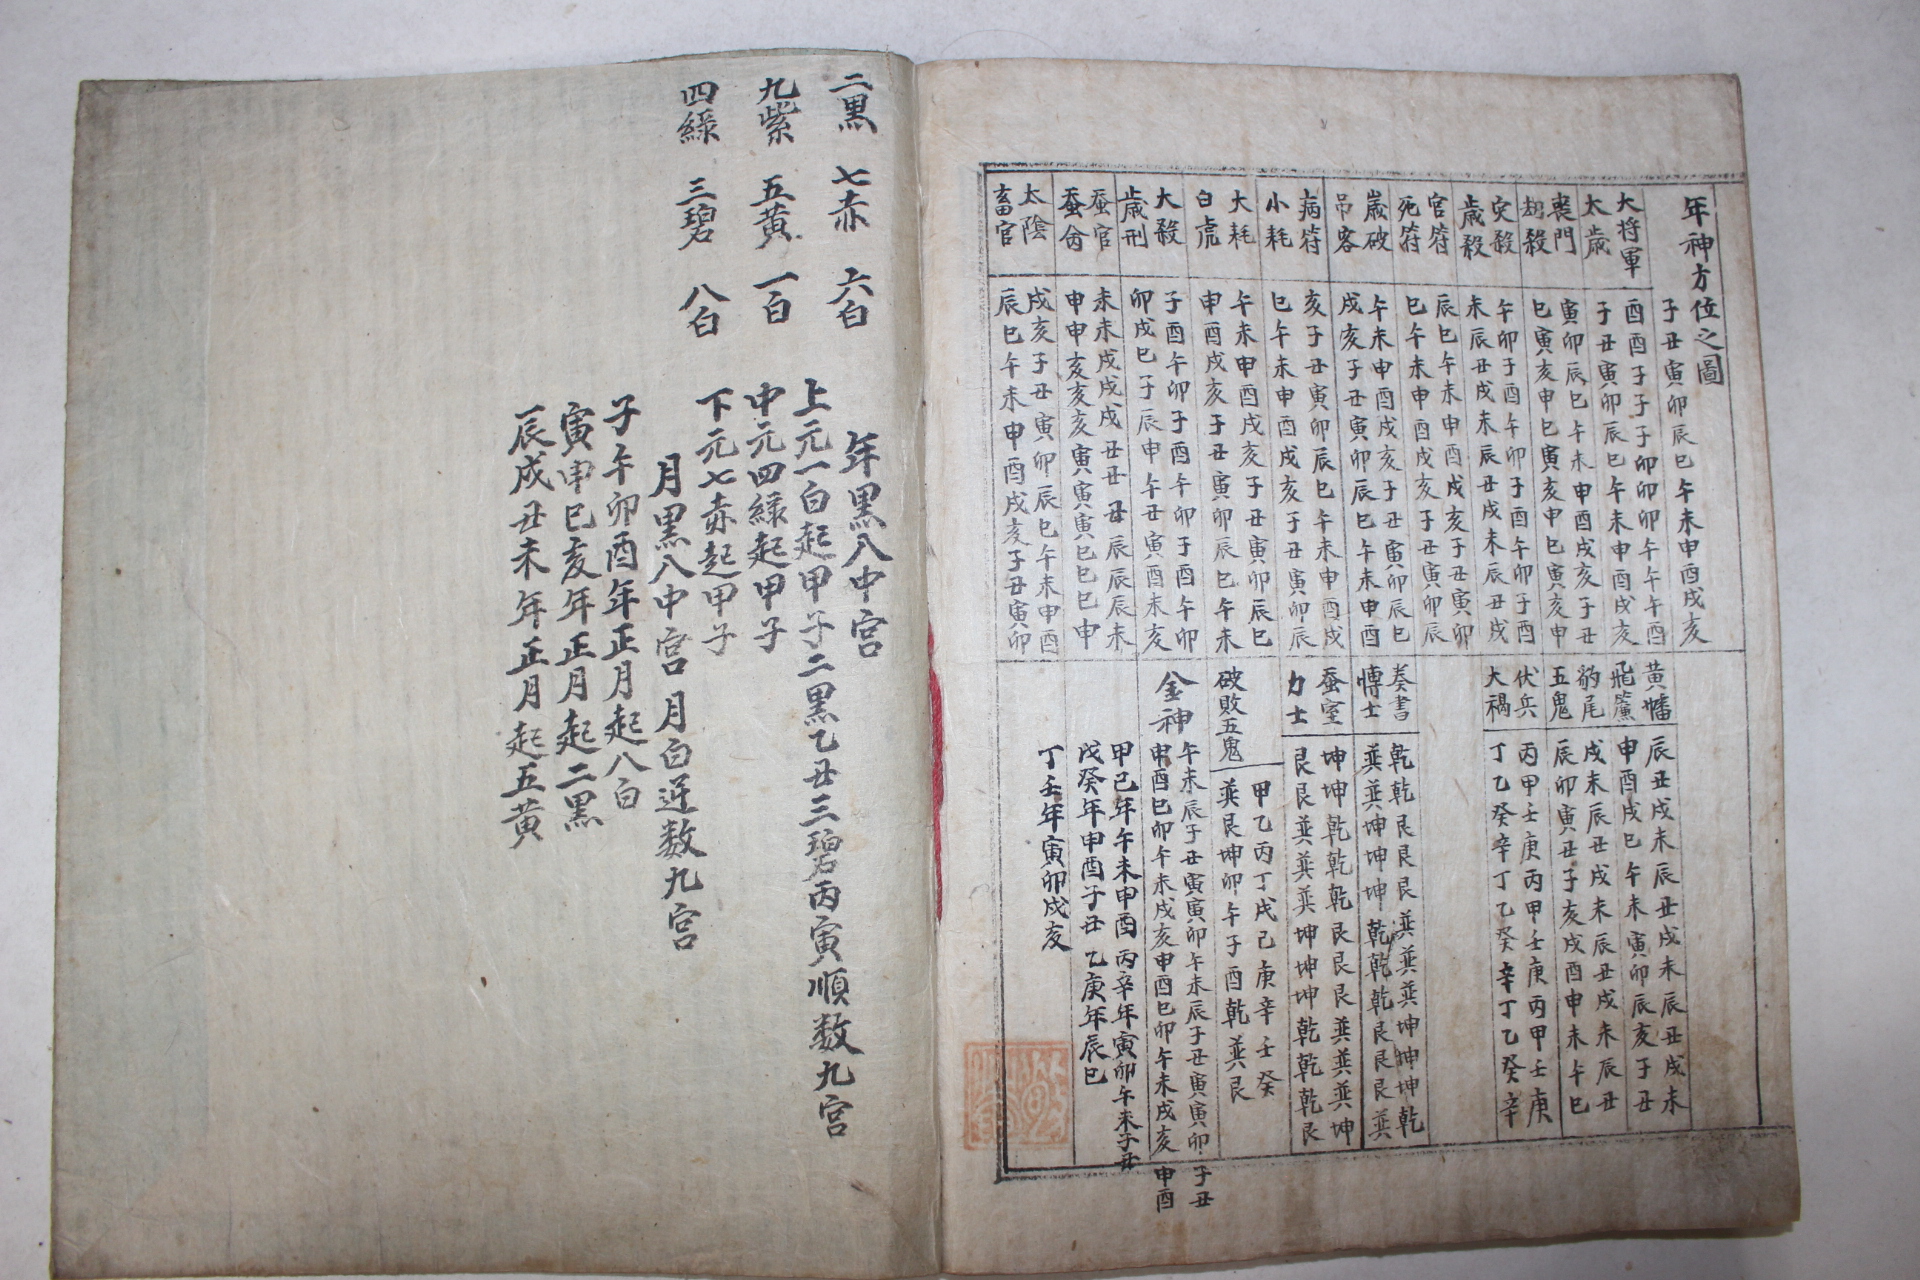 年神方位之圖
子丑寅卯辰巳午未申酉戌亥
大將軍 酉酉子子子卯卯卯午午午酉
太歲 子丑寅卯辰巳午未申酉戌亥
喪門 寅卯辰巳午未申酉戌亥子丑
劫殺 巳寅亥申巳寅亥申巳寅亥申
灾殺 午卯子酉午卯子酉午卯子酉
歲殺 未辰丑戌未辰丑戌未辰丑戌
官符 辰巳午未申酉戌亥子丑寅卯
死符 巳午未申酉戌亥子丑寅卯辰
歲破 午未申酉戌亥子丑寅卯辰巳
吊客 戌亥子丑寅卯辰巳午未申酉
病符 亥子丑寅卯辰巳午未申酉戌
小耗 巳午未申酉戌亥子丑寅卯辰
大耗 午未申酉戌亥子丑寅卯辰巳
白虎 申酉戌亥子丑寅卯辰巳午未
大殺 子酉午卯子酉午卯子酉午卯
歲刑 卯戌巳子辰申午丑寅酉未亥
蚕官 未未戌戌戌丑丑丑辰辰辰未
蚕命 申申亥亥亥寅寅寅巳巳巳申
太陰 戌亥子丑寅卯辰巳午未申酉
畜官 辰巳午未申酉戌亥子丑寅卯
黃幡 辰丑戌未辰丑戌未辰丑戌未
飛廉 申酉戌巳午未寅卯辰亥子丑
豹尾 戌未辰丑戌未辰丑戌未辰丑
五鬼 辰卯寅丑子亥戌酉申未午巳
伏兵 丙甲壬庚丙甲壬庚丙甲壬庚
大禍 丁乙癸辛丁乙癸辛丁乙癸辛
奏書 乾乾艮艮艮巽巽巽坤坤坤乾
博士 巽巽坤坤坤乾乾乾艮艮艮巽
蚕室 坤坤乾乾乾艮艮艮巽巽巽坤
力士 艮艮巽巽巽坤坤坤乾乾乾艮
破敗五鬼 甲乙丙丁戊己庚辛壬癸
巽艮坤卯午子酉乾巽艮
金神 午未辰子丑寅寅卯午未辰子丑寅寅卯子丑
申酉巳卯午未戌亥申酉巳卯午未戌亥申酉
甲己年午未申酉 丙辛年寅卯午未子丑
戊癸年申酉子丑 乙庚年辰巳
丁壬年寅卯戌亥
二黑 七赤 六白
九紫 五黃 一白
四綠 三碧 八白
年黑入中宮
上元一白起甲子二黑乙丑三碧丙寅順数九宮
中元四綠起甲子
下元七赤起甲子
月黑入中宮月白逆数九宮
子午卯酉年正月起八白
寅申巳亥年正月起二黑
辰戌丑未年正月起五黃